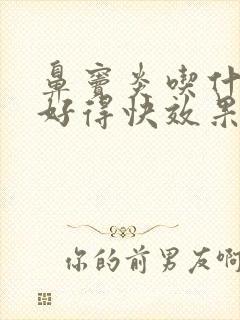 鼻窦炎喫什
好得快效果
你的前男友啊